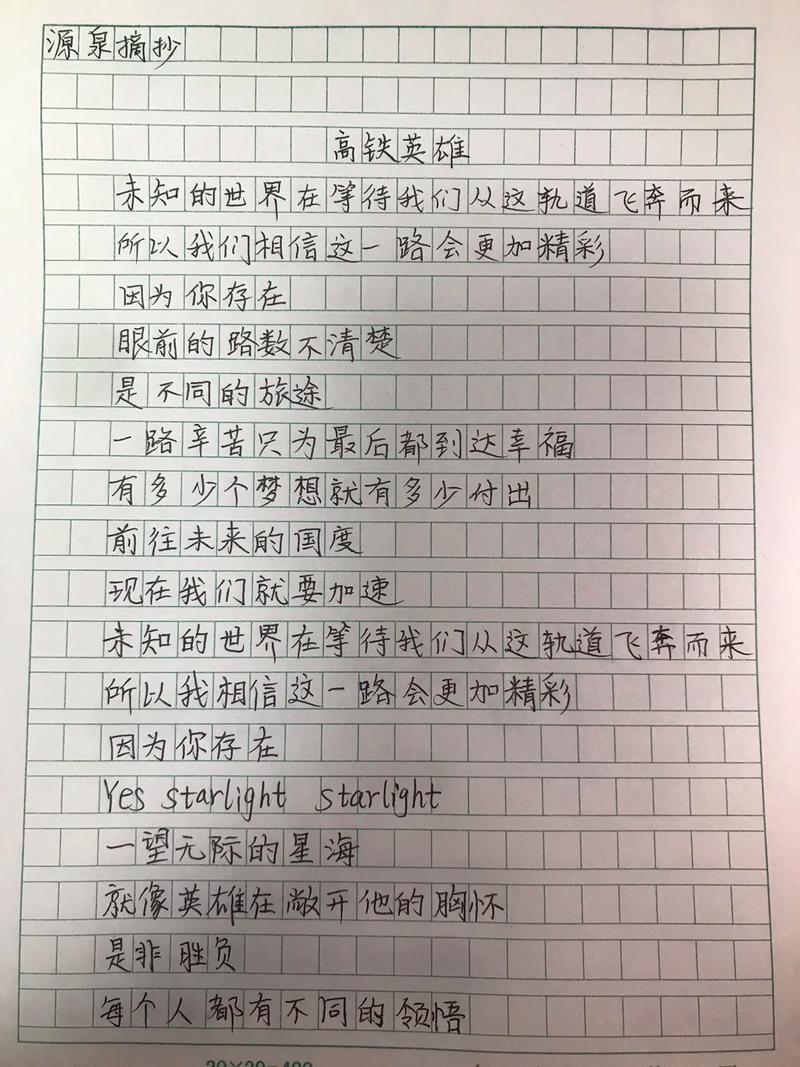 源泉摘抄
高铁英雄
未知的世界在等待我们从这轨道飞奔而来
所以我们相信这一路会更加精彩
因为你存在
眼前的路数不清楚
是不同的旅途
一路辛苦只为最后都到达幸福
有多少个梦想就有多少付出
前往未来的国度
现在我们就要加速
未知的世界在等待我们从这轨道飞奔而来
所以我相信这一路会更加精彩
因为你存在
Yes starlight starlight
一望无际的星海
就像英雄在敞开他的胸怀
是非胜负
每个人都有不同的领悟